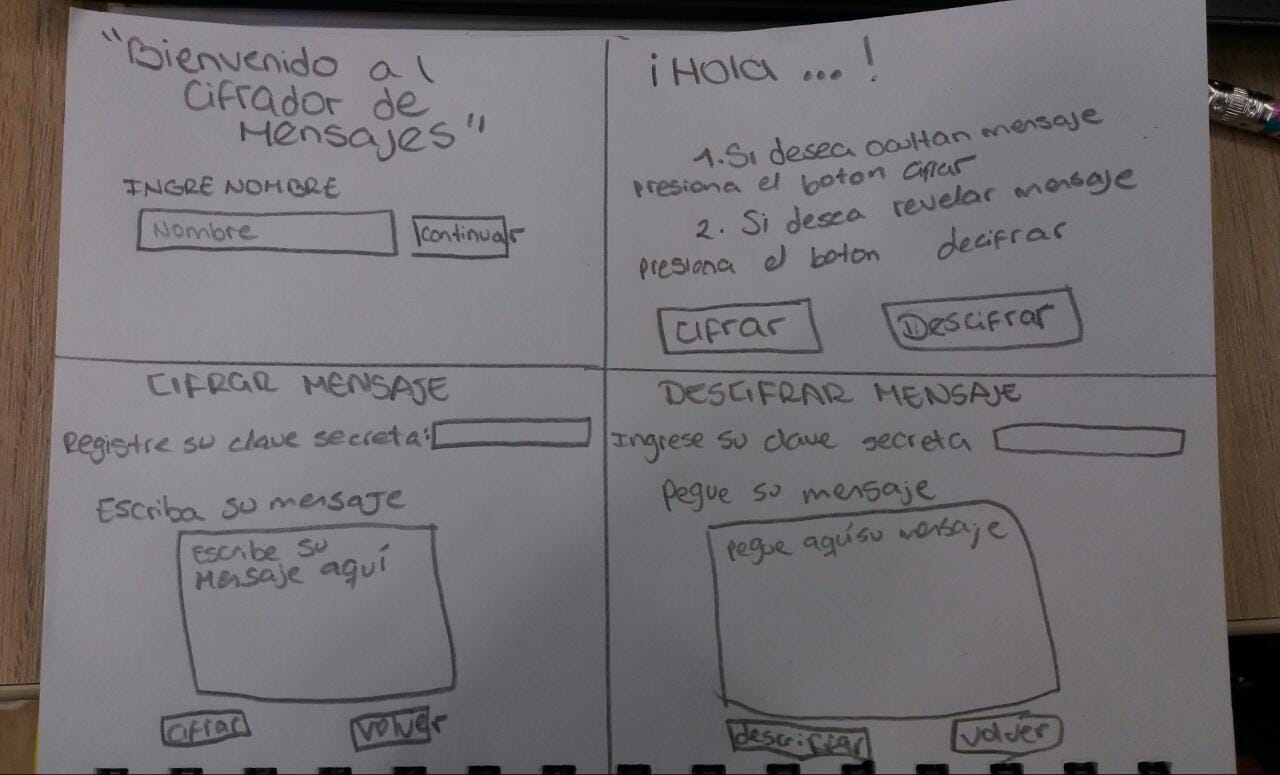 "Bienvenido al
Cifrador de
Mensajes"
INGRE NOMBRE
Nombre
continuar
¡Hola ...!
1. Si desea ocultan mensaje
presiona el boton cifrar
2. Si desea revelar mensaje
presiona el boton decifrar
Cifrar
Descifrar
CIFRAR MENSAJE
Registre su clave secreta:
Escriba su mensaje
Escribe su
Mensaje aquí
cifrar
volver
DESCIFRAR MENSAJE
Ingrese su clave secreta
Pegue su mensaje
pegue aquí su mensaje
volver